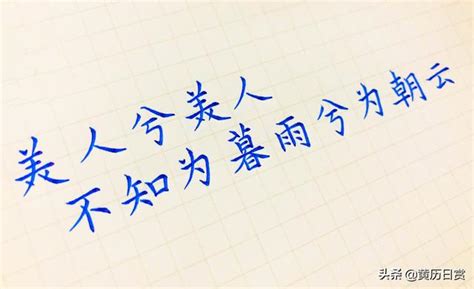 美人兮美人
不知为暮雨兮为朝云
头条 @黄历日赏